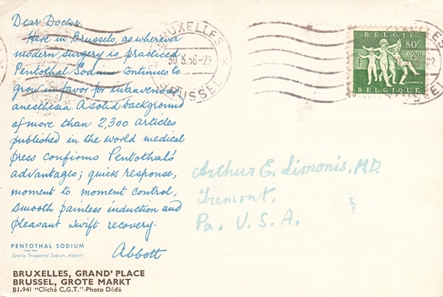 Dear Doctor:
Here in Brussels, as wherever
modern surgery is practiced
Pentothal Sodium continues to
grow in favor for intravenous
anesthesia. A solid background
of more than 2,300 articles
published in the world medical
press confirms Pentothal's
advantages; quick response,
moment to moment control,
smooth painless induction and
pleasant swift recovery.
Abbott
PENTOTHAL SODIUM
BRUXELLES, GRAND' PLACE
BRUSSEL, GROTE MARKT
B1-941 "Cliché C.G.T."-Photo Dédé
BRUXELLES
BRUSSEL
BELGIE
80c
BELGIQUE
Arthur E. Limonis, M.D.
Fremont,
Pa. U.S.A.